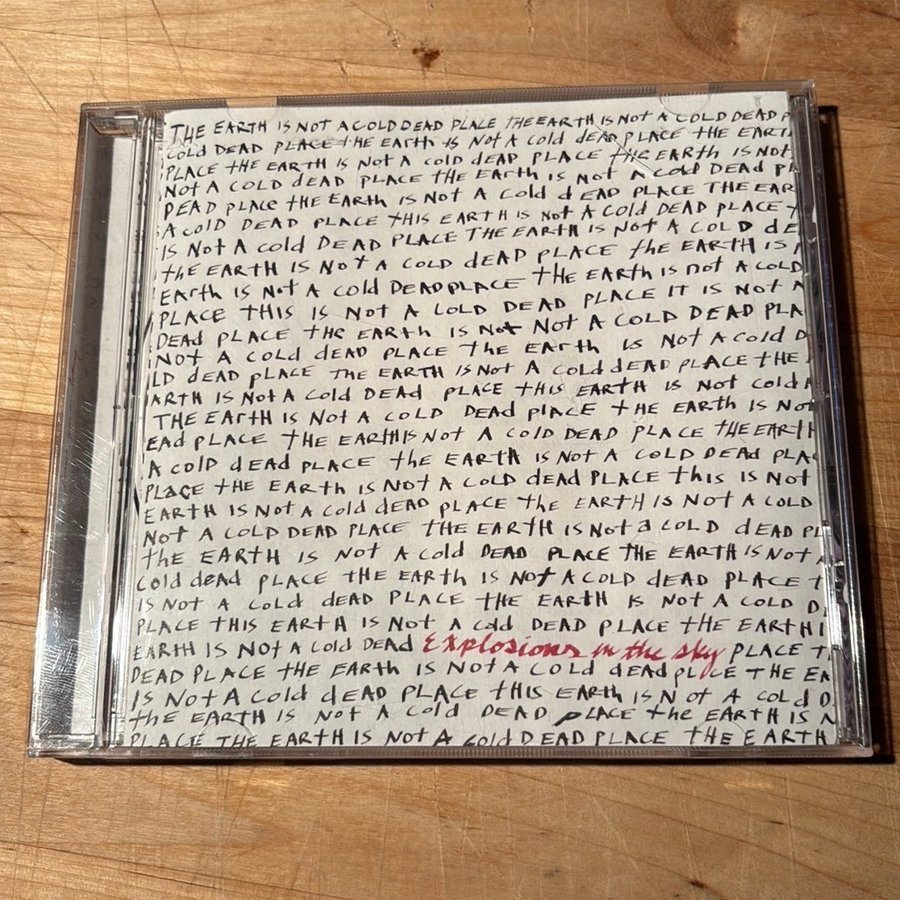 THE EARTH IS NOT A COLD DEAD PLACE THE EARTH IS NOT A COLD DEAD P
COLD DEAD PLACE THE EARTH IS NOT A COLD DEAD PLACE THE EARTH
PLACE THE EARTH IS NOT A COLD DEAD PLACE THE EARTH IS NOT
NOT A COLD DEAD PLACE THE EARTH IS NOT A COLD DEAD PL
DEAD PLACE THE EARTH IS NOT A COLD DEAD PLACE THE EAR
A COLD DEAD PLACE THIS EARTH IS NOT A COLD DEAD PLACE T
IS NOT A COLD DEAD PLACE THE EARTH IS NOT A COLD DE
THE EARTH IS NOT A COLD DEAD PLACE THE EARTH IS
EARTH IS NOT A COLD DEAD PLACE THE EARTH IS NOT A COLD
PLACE THIS IS NOT A COLD DEAD PLACE IT IS NOT A
DEAD PLACE THE EARTH IS NOT NOT A COLD DEAD PLA
NOT A COLD DEAD PLACE THE EARTH IS NOT A COLD D
LD DEAD PLACE THE EARTH IS NOT A COLD DEAD PLACE THE
ARTH IS NOT A COLD DEAD PLACE THIS EARTH IS NOT COLD
THE EARTH IS NOT A COLD DEAD PLACE THE EARTH IS NOT
EAD PLACE THE EARTH IS NOT A COLD DEAD PLACE THE EARTH
A COLD DEAD PLACE THE EARTH IS NOT A COLD DEAD PLA
PLACE THE EARTH IS NOT A COLD DEAD PLACE THIS IS NOT
EARTH IS NOT A COLD DEAD PLACE THE EARTH IS NOT A COLD
NOT A COLD DEAD PLACE THE EARTH IS NOT A COLD DEAD PL
THE EARTH IS NOT A COLD DEAD PLACE THE EARTH IS NOT
COLD DEAD PLACE THE EARTH IS NOT A COLD DEAD PLACE T
IS NOT A COLD DEAD PLACE THE EARTH IS NOT A COLD D
PLACE THIS EARTH IS NOT A COLD DEAD PLACE THE EARTH I
EARTH IS NOT A COLD DEAD Explosions in the sky PLACE T
DEAD PLACE THE EARTH IS NOT A COLD DEAD PLACE THE EA
IS NOT A COLD DEAD PLACE THIS EARTH IS NOT A COLD D
THE EARTH IS NOT A COLD DEAD PLACE THE EARTH IS N
PLACE THE EARTH IS NOT A COLD DEAD PLACE THE EARTH